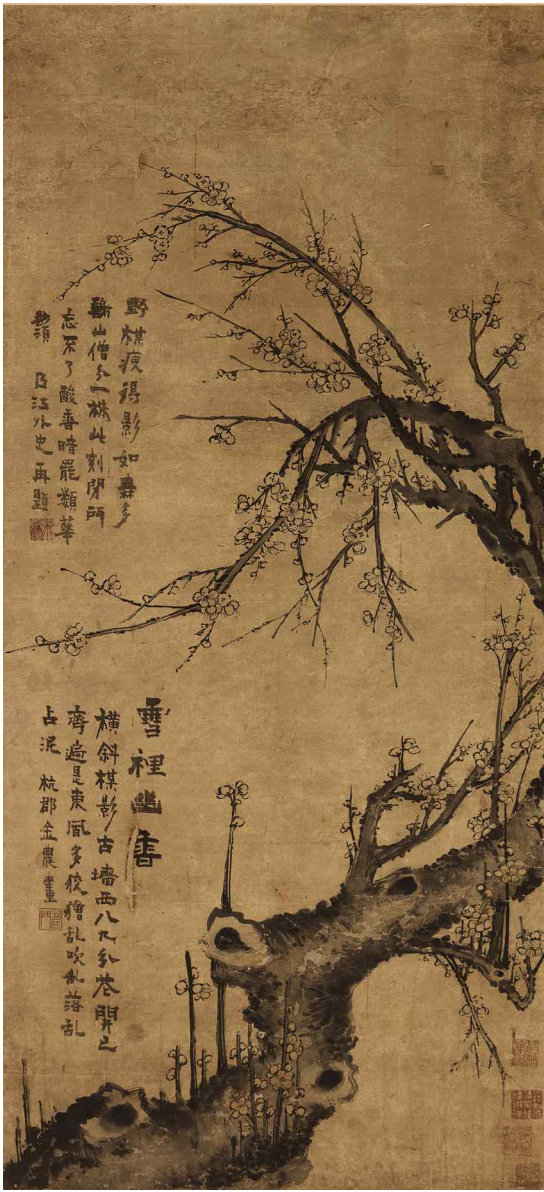 野楳瘦得影如無多
謝山僧分一株此刻閉門
不了酸香罷數華
鬚 江外史再題
雪裡幽香
橫斜楳影古墻西八九分花開已
齊遍是東風多狡獪乱吹乱落乱
占泥 杭郡金農畫